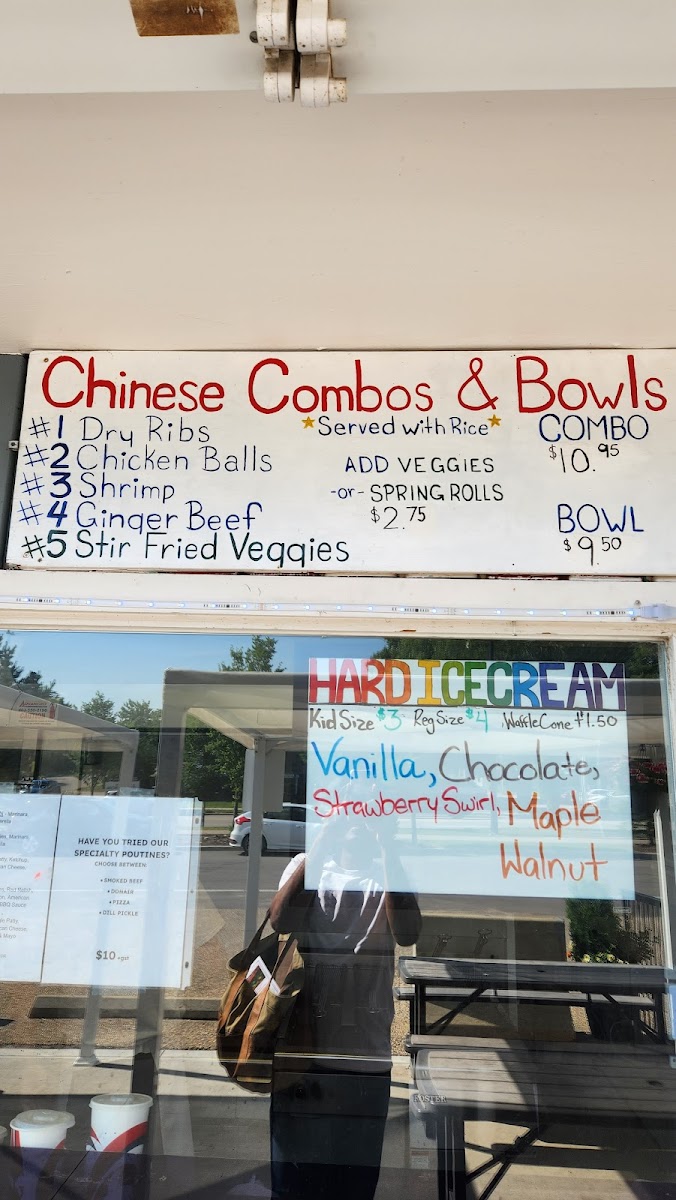 Chinese Combos & Bowls
#1 Dry Ribs
#2 Chicken Balls
#3 Shrimp
#4 Ginger Beef
#5 Stir Fried Veggies
*Served with Rice*
ADD VEGGIES
-or- SPRING ROLLS
$2.75
COMBO
$10.95
BOWL
$9.50
HARD ICECREAM
Kid Size $3 Reg Size $4 Waffle Cone +1.50
Vanilla, Chocolate,
Strawberry Swirl, Maple
Walnut
HAVE YOU TRIED OUR
SPECIALTY POUTINES?
CHOOSE BETWEEN
• SMOKED BEEF
• DONAIR
• PIZZA
• DILL PICKLE
$10 +gst